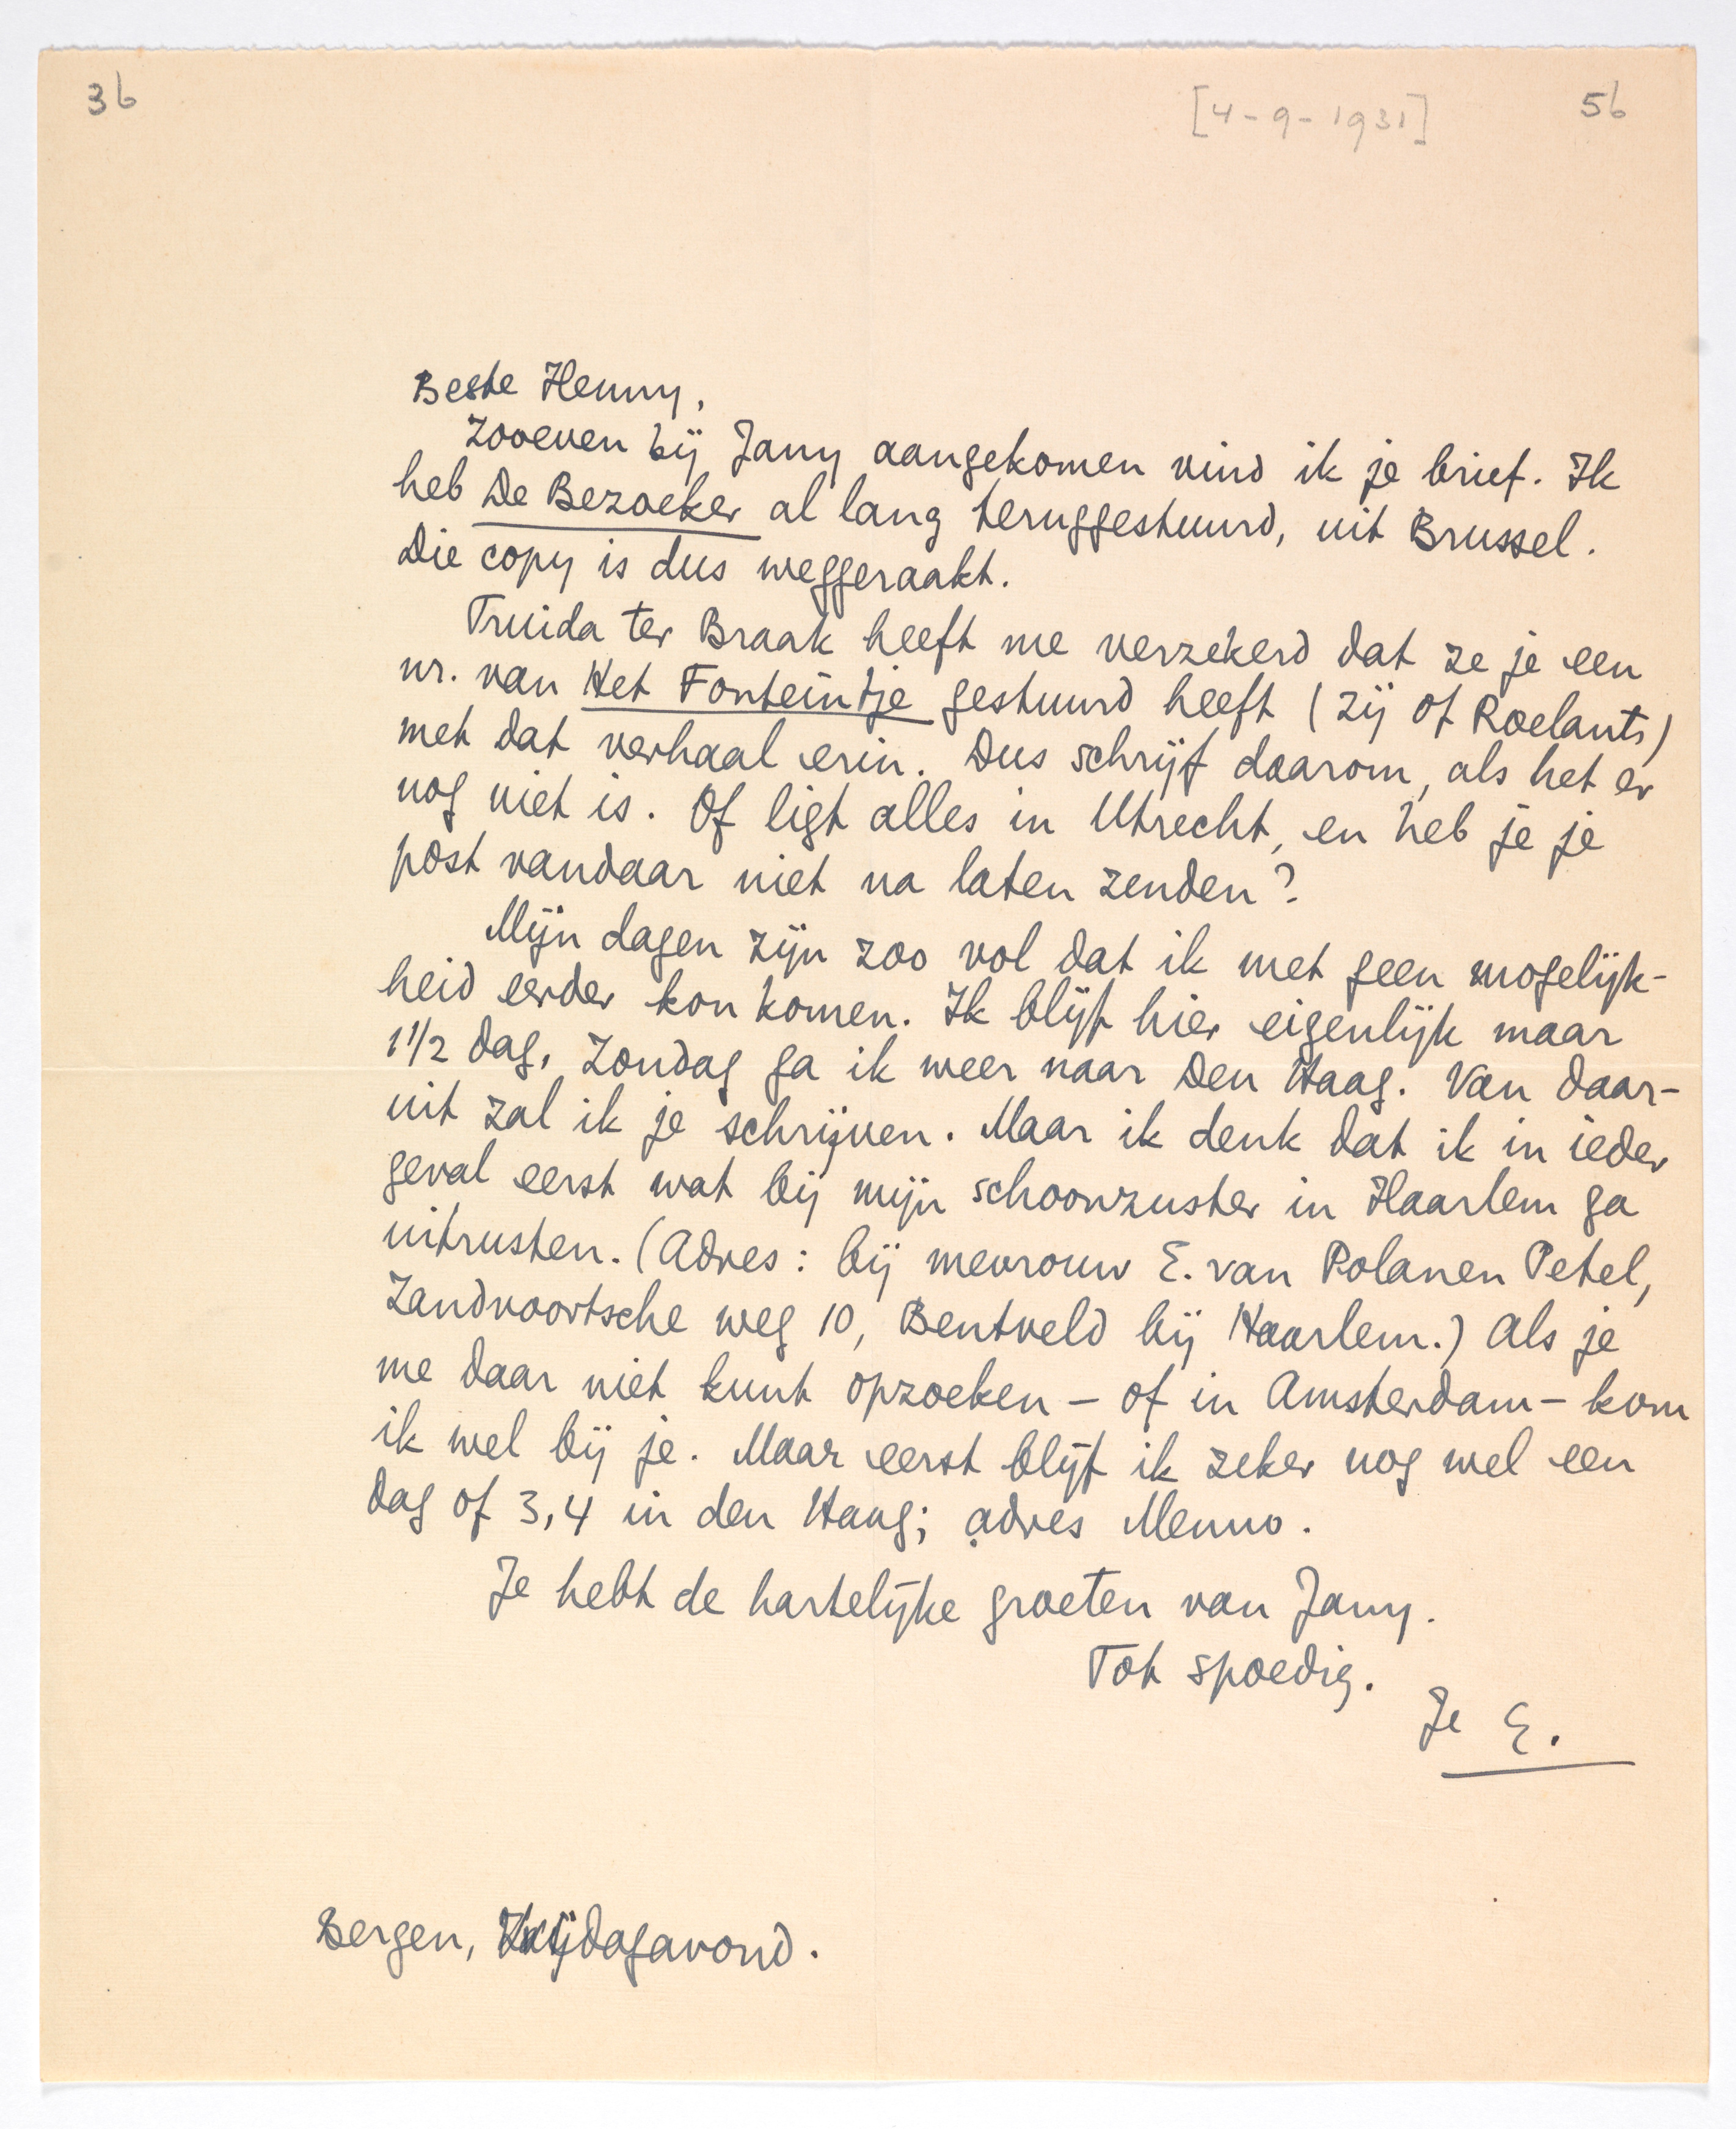 36
[4-9-1931]
56
Beste Henny,
Zooeven bij Jany aangekomen vind ik je brief. Ik
heb De Bezoeker al lang teruggestuurd, uit Brussel.
Die copy is dus weggeraakt.
Truida ter Braak heeft me verzekerd dat ze je een
nr. van Het Fonteintje gestuurd heeft (zij of Roelants)
met dat verhaal erin. Dus schrijf daarom, als het er
nog niet is. Of ligt alles in Utrecht, en heb je je
post vandaar niet na laten zenden?
Mijn dagen zijn zoo vol dat ik met geen mogelijk-
heid eerder kon komen. Ik blijf hier eigenlijk maar
1 1/2 dag, Zondag ga ik weer naar Den Haag. Van daar-
uit zal ik je schrijven. Maar ik denk dat ik in ieder
geval eerst wat bij mijn schoonzuster in Haarlem ga
uitrusten. (Adres: bij mevrouw E. van Polanen Petel,
Zandvoortsche weg 10, Bentveld bij Haarlem.) Als je
me daar niet kunt opzoeken – of in Amsterdam – kom
ik wel bij je. Maar eerst blijf ik zeker nog wel een
dag of 3, 4 in den Haag; adres Menno.
Je hebt de hartelijke groeten van Jany.
Tot spoedig.
Je E.
Bergen, Vrijdagavond.